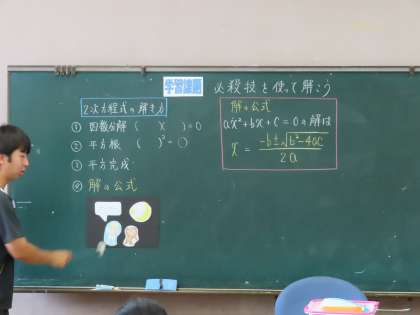 学習課題 必殺技を使って解こう
2次方程式の解き方
① 因数分解 ( )( )=0
② 平方根 ( )²=○
③ 平方完成
④ 解の公式
解の公式
ax²+bx+c=0の解は
x = (-b±√(b²-4ac))/(2a)